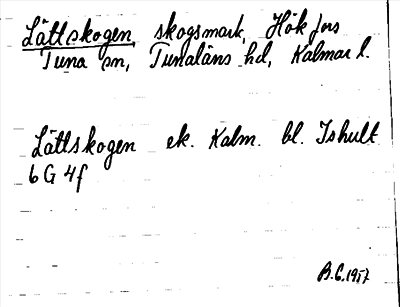 Lättskogen, skogsmark, Hökfors
Tuna sn, Tunaläns hd, Kalmar l.
Lättskogen ek. Kalm. bl. Ishult
6 G 4f
B.C. 1957